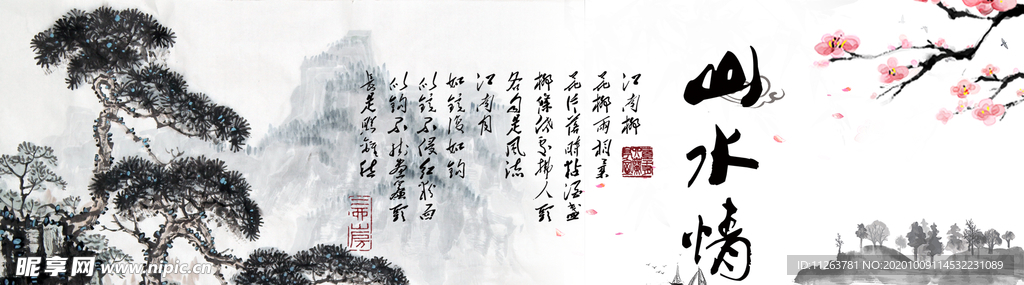 山水情
江南柳
花柳两相柔
花片落時粘酒盏
柳條低處拂人頭
各自是風流
江南月
如鏡復如鈎
似鏡不侵紅粉面
似鈎不挂畫簾頭
長是照離愁
昵享网 www.nipic.cn
ID:11263781 NO:20201009114532231089